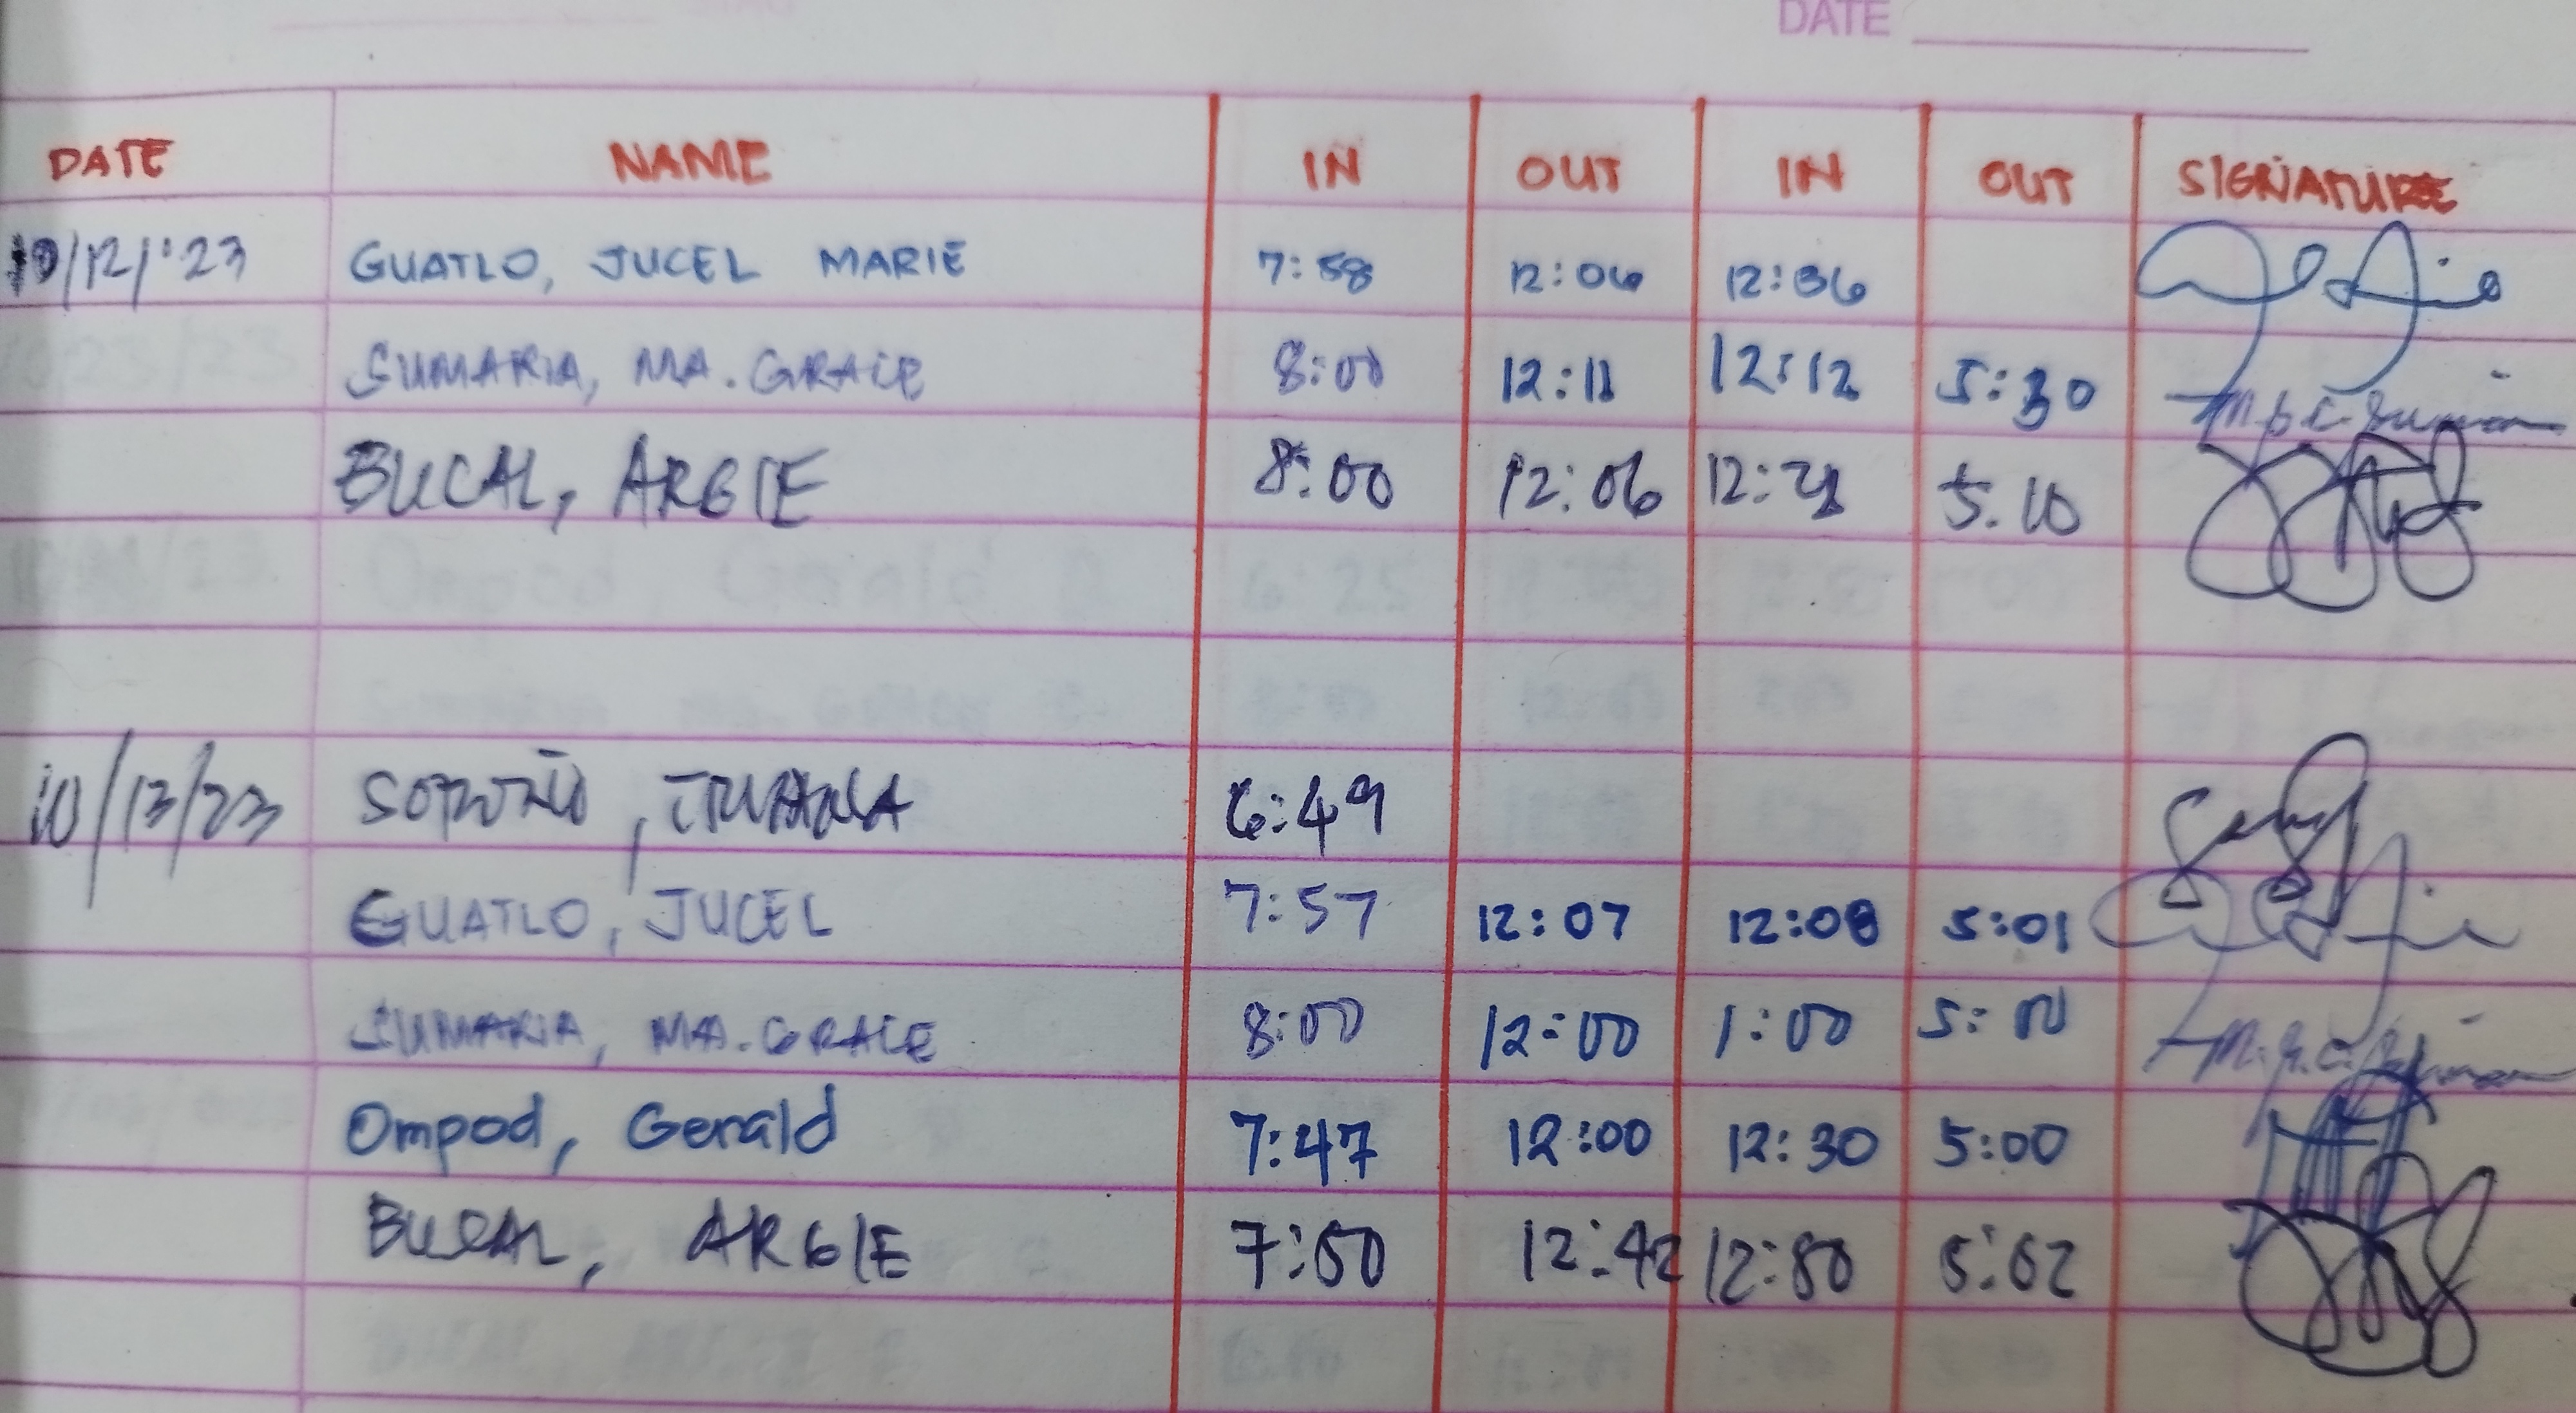 DATE
DATE NAME IN OUT IN OUT SIGNATURE
10/12/'23 GUATLO, JUCEL MARIE 7:58 12:06 12:36
SUMARIA, MA. GRACE 8:00 12:11 12:12 5:30
BUCAL, ARGIE 8:00 12:06 12: 5.10
10/13/23 6:49
GUATLO, JUCEL 7:57 12:07 12:08 5:01
SUMARIA, MA. GRACE 8:00 12:00 1:00 5:00
Ompod, Gerald 7:47 12:00 12:30 5:00
BUCAL, ARGIE 7:50 12:42 12:50 5:02